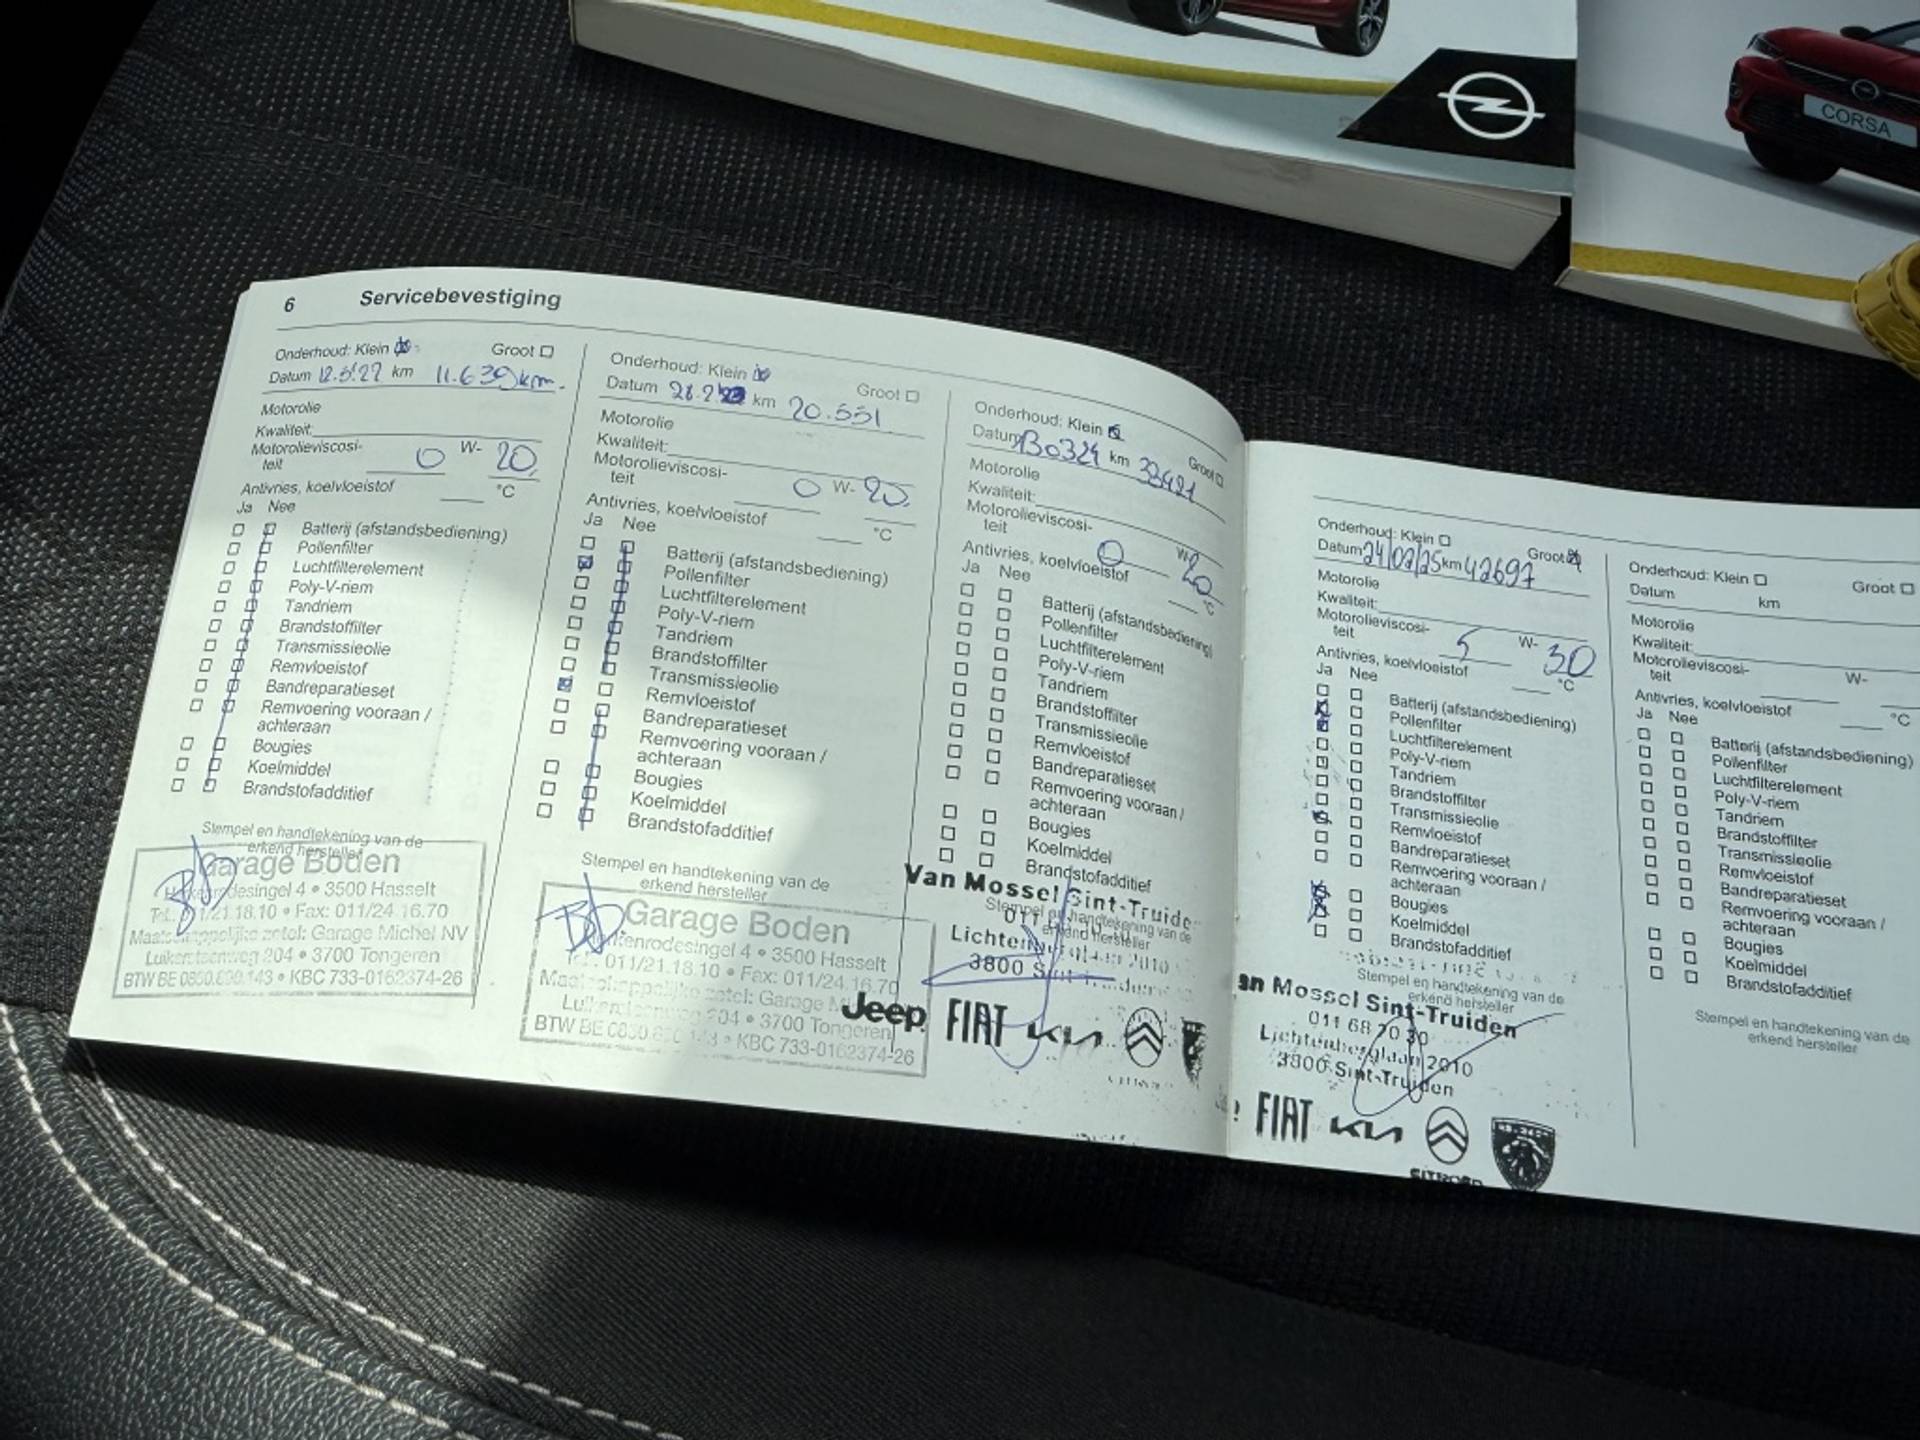 CORSA
6 Servicebevestiging
Onderhoud: Klein Groot
Datum 12.5.22 km 11.639 km.
Motorolie
Kwaliteit:
Motorolieviscosi-
teit 0 W- 20
Antivries, koelvloeistof °C
Ja Nee
Batterij (afstandsbediening)
Pollenfilter
Luchtfilterelement
Poly-V-riem
Tandriem
Brandstoffilter
Transmissieolie
Remvloeistof
Bandreparatieset
Remvoering vooraan /
achteraan
Bougies
Koelmiddel
Brandstofadditief
Stempel en handtekening van de
erkend hersteller
Garage Boden
4 • 3500 Hasselt
Tel.: 011/21.18.10 • Fax: 011/24.16.70
Maatschappelijke zetel: Garage Michel NV
204 • 3700 Tongeren
BTW BE • KBC 733-0162374-26
Onderhoud: Klein Groot
Datum km 20.551
Motorolie
Kwaliteit:
Motorolieviscosi-
teit 0 W- 20
Antivries, koelvloeistof °C
Ja Nee
Batterij (afstandsbediening)
Pollenfilter
Luchtfilterelement
Poly-V-riem
Tandriem
Brandstoffilter
Transmissieolie
Remvloeistof
Bandreparatieset
Remvoering vooraan /
achteraan
Bougies
Koelmiddel
Brandstofadditief
Stempel en handtekening van de
erkend hersteller
Garage Boden
4 • 3500 Hasselt
Tel.: 011/21.18.10 • Fax: 011/24.16.70
Maatschappelijke zetel: Garage
204 • 3700 Tongeren
BTW BE • KBC 733-0162374-26
Onderhoud: Klein Groot
Datum 130324 km 33421
Motorolie
Kwaliteit:
Motorolieviscosi-
teit 0 W- 20
Antivries, koelvloeistof °C
Ja Nee
Batterij (afstandsbediening)
Pollenfilter
Luchtfilterelement
Poly-V-riem
Tandriem
Brandstoffilter
Transmissieolie
Remvloeistof
Bandreparatieset
Remvoering vooraan /
achteraan
Bougies
Koelmiddel
Brandstofadditief
Stempel en handtekening van de
erkend hersteller
Van Mossel Sint-Truide
011
2010
3800
Jeep FIAT KIA
Onderhoud: Klein Groot
Datum 24/02/25 km 42697
Motorolie
Kwaliteit:
Motorolieviscosi-
teit 5 W- 30
Antivries, koelvloeistof °C
Ja Nee
Batterij (afstandsbediening)
Pollenfilter
Luchtfilterelement
Poly-V-riem
Tandriem
Brandstoffilter
Transmissieolie
Remvloeistof
Bandreparatieset
Remvoering vooraan /
achteraan
Bougies
Koelmiddel
Brandstofadditief
Stempel en handtekening van de
erkend hersteller
an Mossel Sint-Truiden
011 68 70 30
Lichtenberglaan 2010
3800 Sint-Truiden
FIAT KIA
CITROËN
Onderhoud: Klein Groot
Datum km
Motorolie
Kwaliteit:
Motorolieviscosi-
teit W-
Antivries, koelvloeistof °C
Ja Nee
Batterij (afstandsbediening)
Pollenfilter
Luchtfilterelement
Poly-V-riem
Tandriem
Brandstoffilter
Transmissieolie
Remvloeistof
Bandreparatieset
Remvoering vooraan /
achteraan
Bougies
Koelmiddel
Brandstofadditief
Stempel en handtekening van de
erkend hersteller